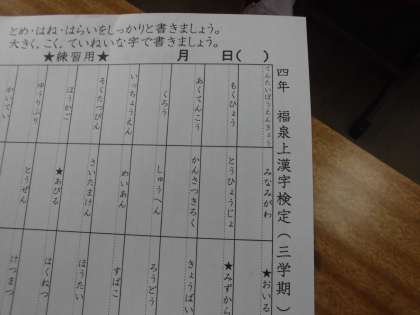 とめ・はね・はらいをしっかりと書きましょう。
大きく、こく、ていねいな字で書きましょう。
★練習用★ 月 日( )
四年 福泉上漢字検定(三学期)
みなみがわ
★おいる
もくひょう
とうひょうじょ
★みずから
あくてんこう
かんさつきろく
きょうばい
くろう
しゅうへん
ろうどう
いっちょうえん
めいあん
すばこ
そくたつびん
さいたまけん
ほうたい
★あびる
はくねつ
ゆりふり
とうぜん
けつまつ